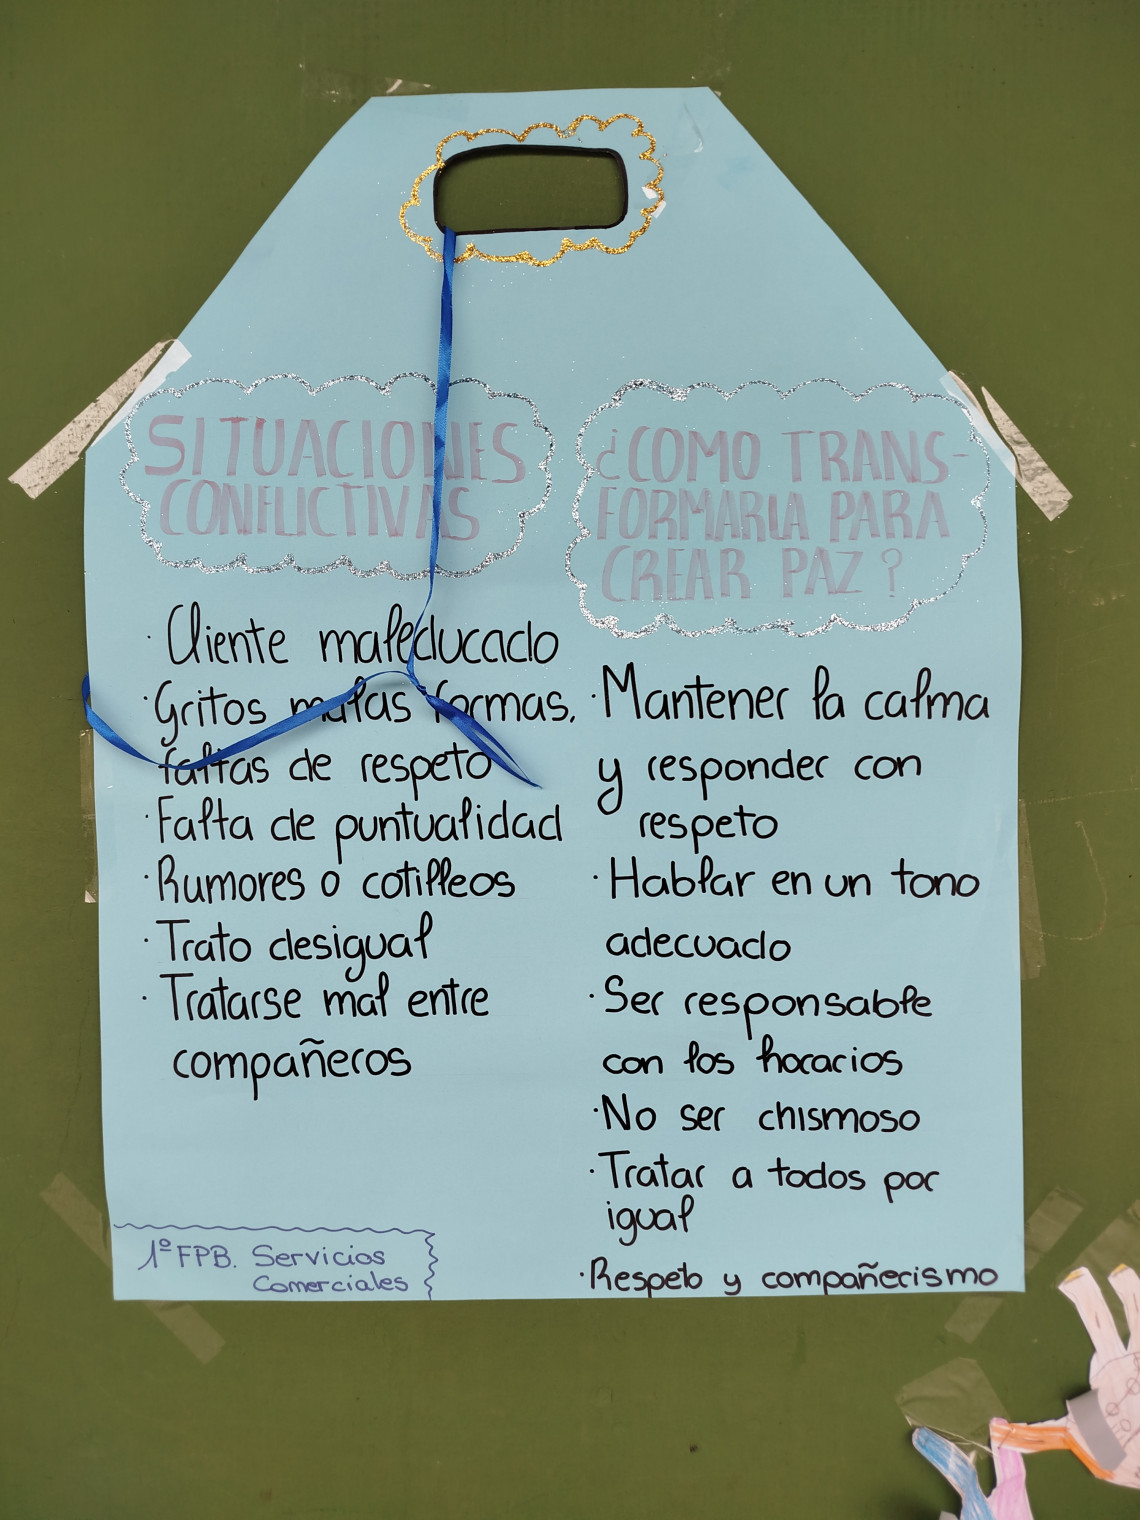 SITUACIONES
CONFLICTIVAS
· Cliente maleducado
· Gritos malas formas,
faltas de respeto
· Falta de puntualidad
· Rumores o cotilleos
· Trato desigual
· Tratarse mal entre
compañeros
1º FPB. Servicios
Comerciales
¿COMO TRANS-
FORMARIA PARA
CREAR PAZ?
· Mantener la calma
y responder con
respeto
· Hablar en un tono
adecuado
· Ser responsable
con los horarios
· No ser chismoso
· Tratar a todos por
igual
· Respeto y compañerismo